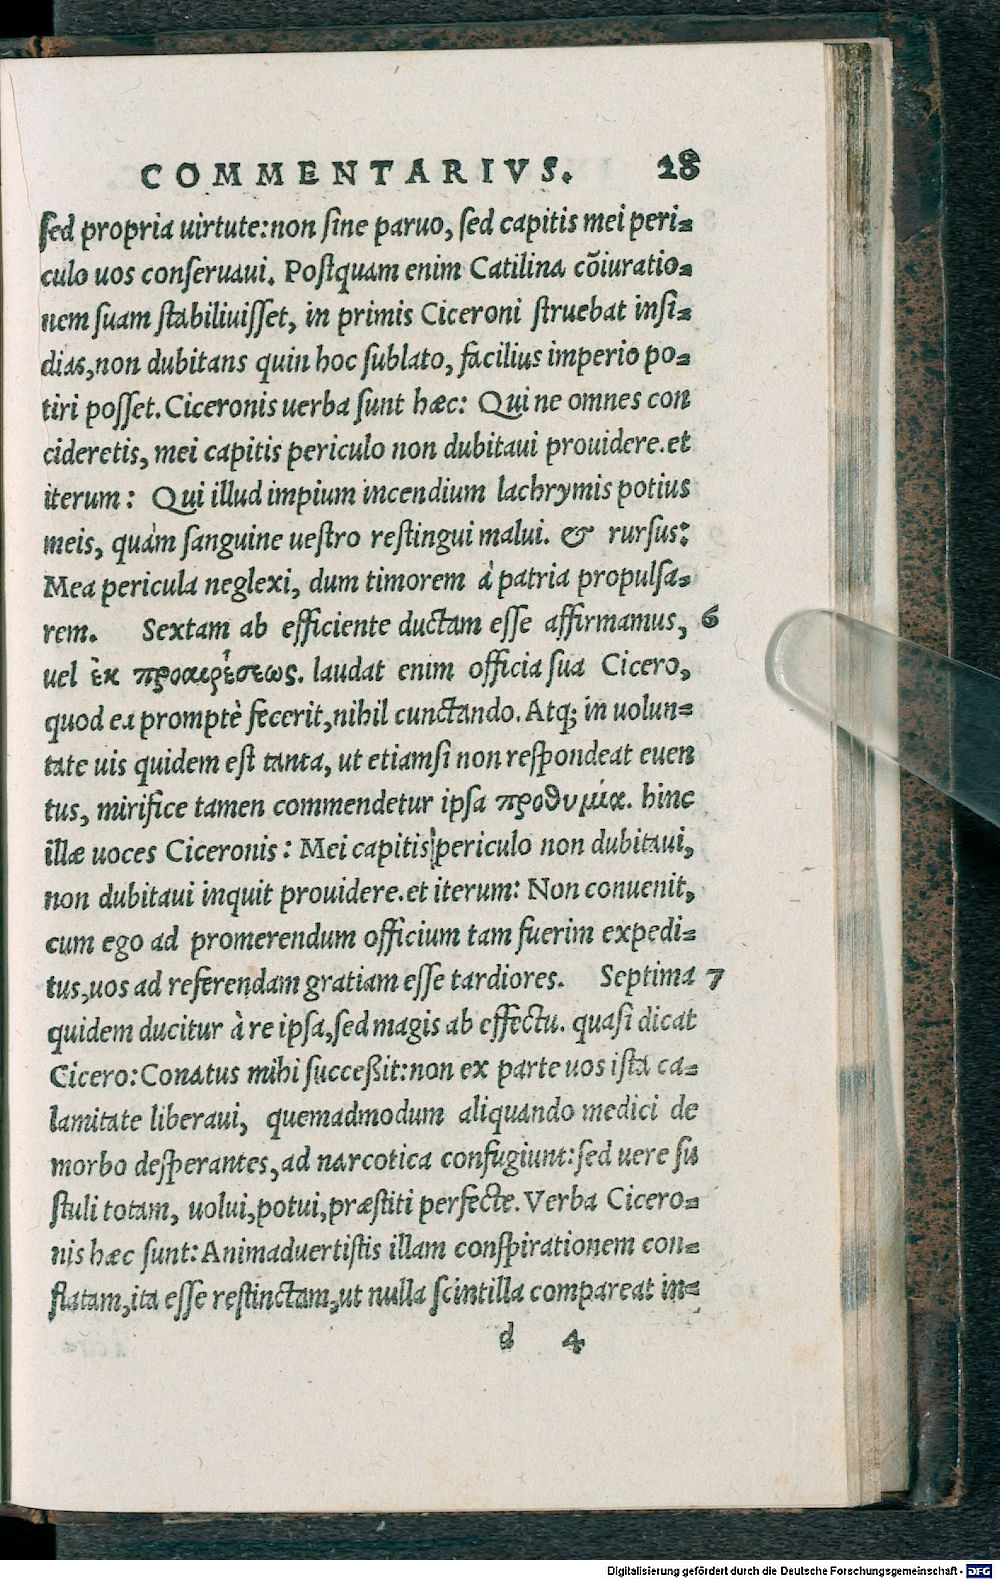 COMMENTARIVS. 28
ſed propria uirtute:non ſine paruo, ſed capitis mei peri⸗
culo uos conſeruaui. Poſtquam enim Catilina cõiuratio⸗
nem ſuam ſtabiliuiſſet, in primis Ciceroni ſtruebat inſi⸗
dias,non dubitans quin hoc ſublato, facilius imperio po⸗
tiri poſſet. Ciceronis uerba ſunt hæc: Qui ne omnes con
cideretis, mei capitis periculo non dubitaui prouidere.et
iterum: Qui illud impium incendium lachrymis potius
meis, quàm ſanguine ueſtro reſtingui malui. & rurſus:
Mea pericula neglexi, dum timorem à patria propulſa⸗
rem. Sextam ab efficiente ductam eſſe affirmamus, 6
uel ἐκ προαιρέσεως. laudat enim officia ſua Cicero,
quod ea promptè fecerit,nihil cunctando. Atq; in uolun⸗
tate uis quidem eſt tanta, ut etiamſi non reſpondeat euen
tus, mirifice tamen commendetur ipſa προθυμία. hinc
illæ uoces Ciceronis: Mei capitis periculo non dubitaui,
non dubitaui inquit prouidere.et iterum: Non conuenit,
cum ego ad promerendum officium tam fuerim expedi⸗
tus,uos ad referendam gratiam eſſe tardiores. Septima 7
quidem ducitur à re ipſa,ſed magis ab effectu. quaſi dicat
Cicero:Conatus mihi ſucceßit:non ex parte uos iſta ca⸗
lamitate liberaui, quemadmodum aliquando medici de
morbo deſperantes,ad narcotica confugiunt:ſed uere ſu
ſtuli totam, uolui,potui,præſtiti perfecte. Verba Cicero⸗
nis hæc ſunt: Animaduertiſtis illam conſpirationem con⸗
flatam,ita eſſe reſtinctam,ut nulla ſcintilla compareat in⸗
d 4
Digitalisierung gefördert durch die Deutsche Forschungsgemeinschaft - DFG